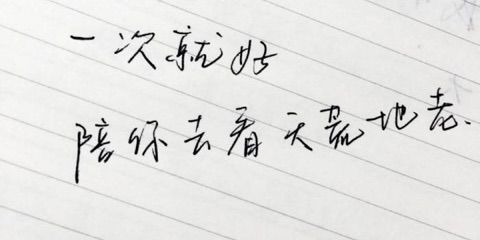 一次就好
陪你去看天荒地老.